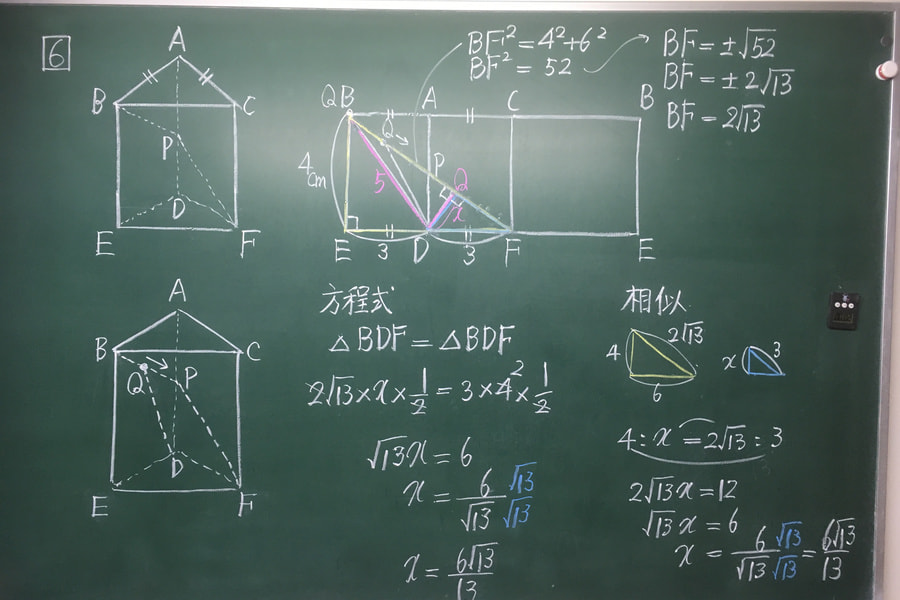 6
A
B C
P
D
E F
A
B C
Q P
D
E F
BF²=4²+6²
BF²=52
BF=±√52
BF=±2√13
BF=2√13
QB A C B
Q
P
4cm
5
Q
x
E 3 D 3 F E
方程式
△BDF=△BDF
2√13×x×1/2=3×4²×1/2
√13x=6
x=6/√13 √13/√13
x=6√13/13
相似
4 2√13 6
x 3
4:x=2√13:3
2√13x=12
√13x=6
x=6/√13 √13/√13=6√13/13